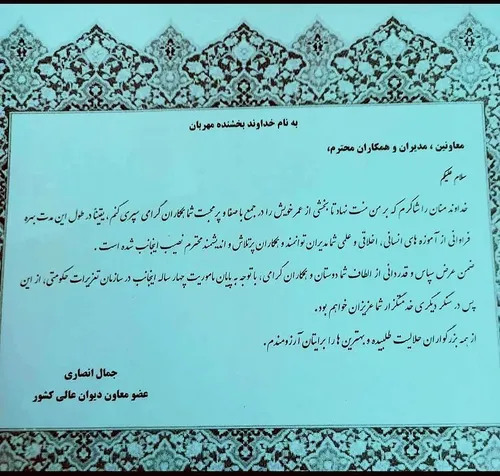 به نام خداوند بخشنده مهربان
معاونین ، مدیران و همکاران محترم،
سلام علیکم
خداوند منان را شاکرم که بر من منت نهاد تا بخشی از عمر خویش را در جمع با صفا و پر محبت شما همکاران گرامی سپری کنم، یقینا در طول این مدت بهره
فراوانی از آموزه های انسانی ، اخلاقی و علمی شما مدیران توانمند و همکاران پرتلاش و اندیشمند محترم نصیب اینجانب شده است .
ضمن عرض سپاس و قدردانی از الطاف شما دوستان و همکاران گرامی، با توجه به پایان ماموریت چهار ساله اینجانب در سازمان تعزیرات حکومتی، از این
پس در سنگر دیگری خدمتگزار شما عزیزان خواهم بود.
از همه بزرگواران حلالیت طلبیده و بهترین ها را برایتان آرزومندم.
جمال انصاری
عضو معاون دیوان عالی کشور